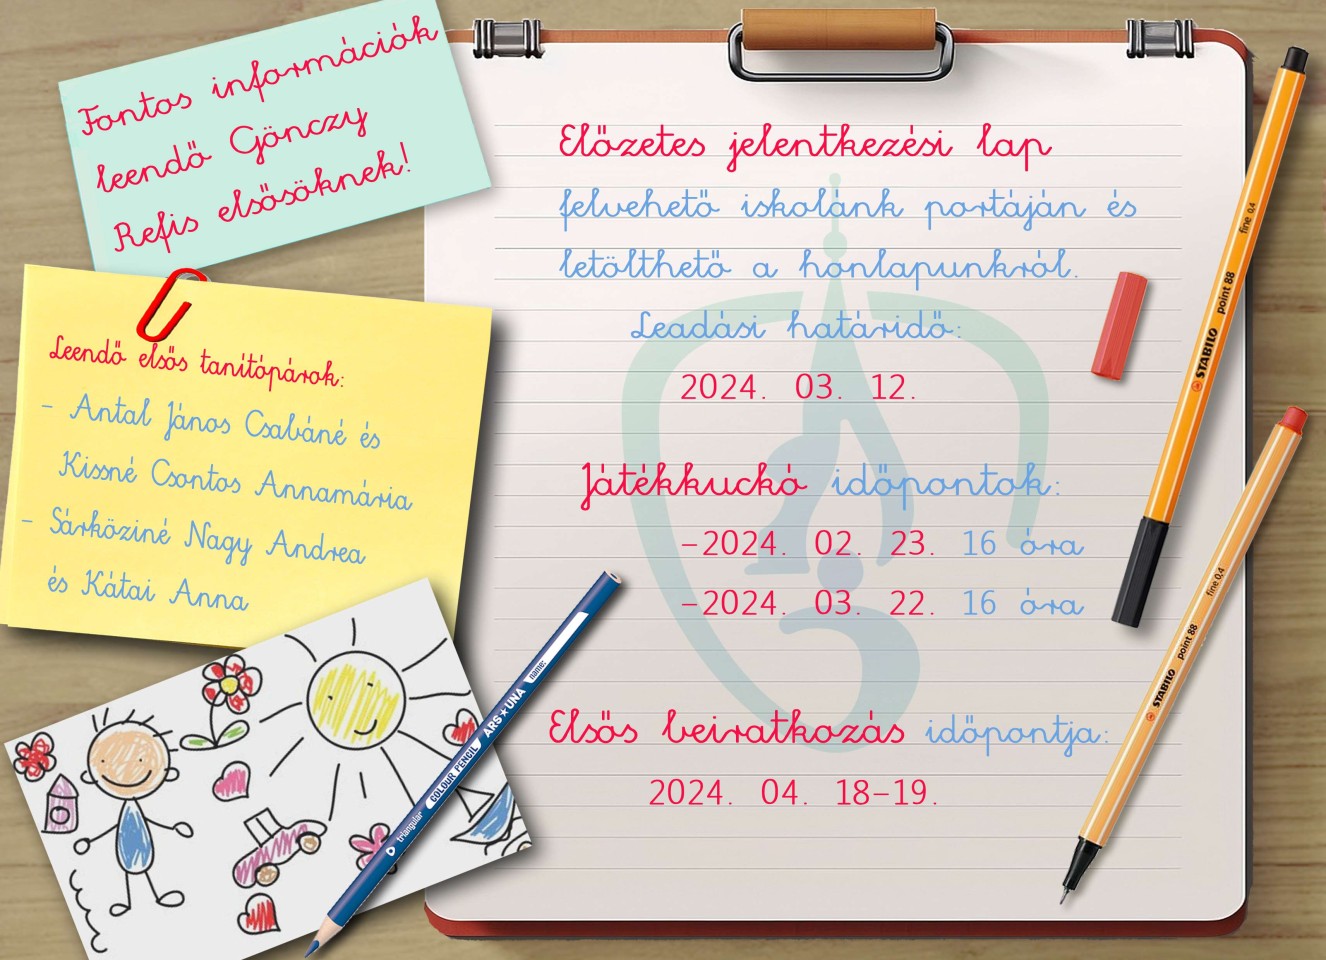 Fontos információk
leendő Gönczy
Refis elsősöknek!
Leendő elsős tanítópárok:
- Antal János Csabáné és
Kissné Csontos Annamária
- Sárköziné Nagy Andrea
és Kátai Anna
Előzetes jelentkezési lap
felvehető iskolánk portáján és
letölthető a honlapunkról.
Leadási határidő:
2024. 03. 12.
Játékkuckó időpontok:
-2024. 02. 23. 16 óra
-2024. 03. 22. 16 óra
Elsős beiratkozás időpontja:
2024. 04. 18-19.
STABILO point 88 fine 0,4
STABILO point 88 fine 0,4
triangular COLOUR PENCIL ARS★UNA name: